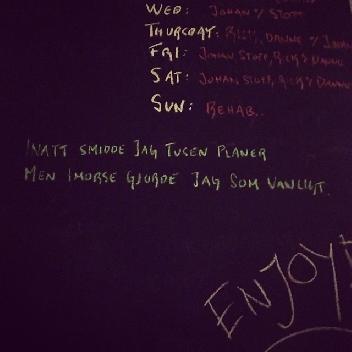 WED: JOHAN & STOFF
THURSDAY: RICKY, DANNE & JOHAN
FRI: JOHAN STOFF, RICKY & DANNE
SAT: JOHAN, STOFF, RICKY & DANNE
SUN: REHAB..
INATT SMIDDE JAG TUSEN PLANER
MEN IMORSE GJORDE JAG SOM VANLIGT.
ENJOY!